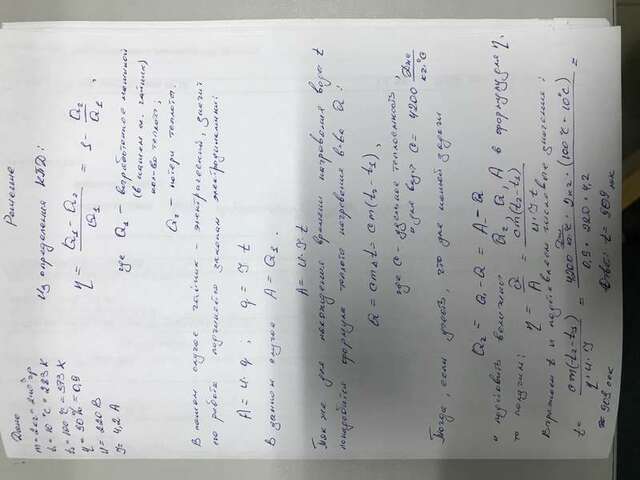 Дано
m = 2 кг = 2·10³ гр
t₁ = 10°C = 283 K
t₂ = 100°C = 373 K
η = 90% = 0,9
U = 220 В
I = 4,2 А
Решение
Из определения КПД:
η = (Q₁ - Q₂)/Q₁ = 1 - Q₂/Q₁,
где Q₁ - выработанное машиной
(в нашем сл. чайник)
кол-во теплоты,
Q₂ - потери теплоты.
В нашем случае чайник - электрический, значит
его работа подчиняется законам электродинамики:
A = U·q; q = I t
В данном случае A = Q₁.
A = U·I t
Так же для нахождения времени нагревания воды t
понадобится формула теплоты нагревания в-ва Q:
Q = cmΔt = cm(t₂-t₁),
где c - удельная теплоемкость,
для воды c = 4200 Дж/кг·°C
Тогда, если учесть, что для нашей задачи
Q₂ = Q₁ - Q = A - Q
и подставить величины Q₂, Q₁, A в формулу для η,
то получим: η = Q/A = cm(t₂-t₁)/(U·I t)
Выразим t и подставляем числовые значения:
t = cm(t₂-t₁)/(η·U·I) = 4200 Дж/кг·°C · 2кг · (100°C - 10°C)/(0,9 · 220 · 4,2) =
≈ 909 сек
Ответ: t = 909 сек